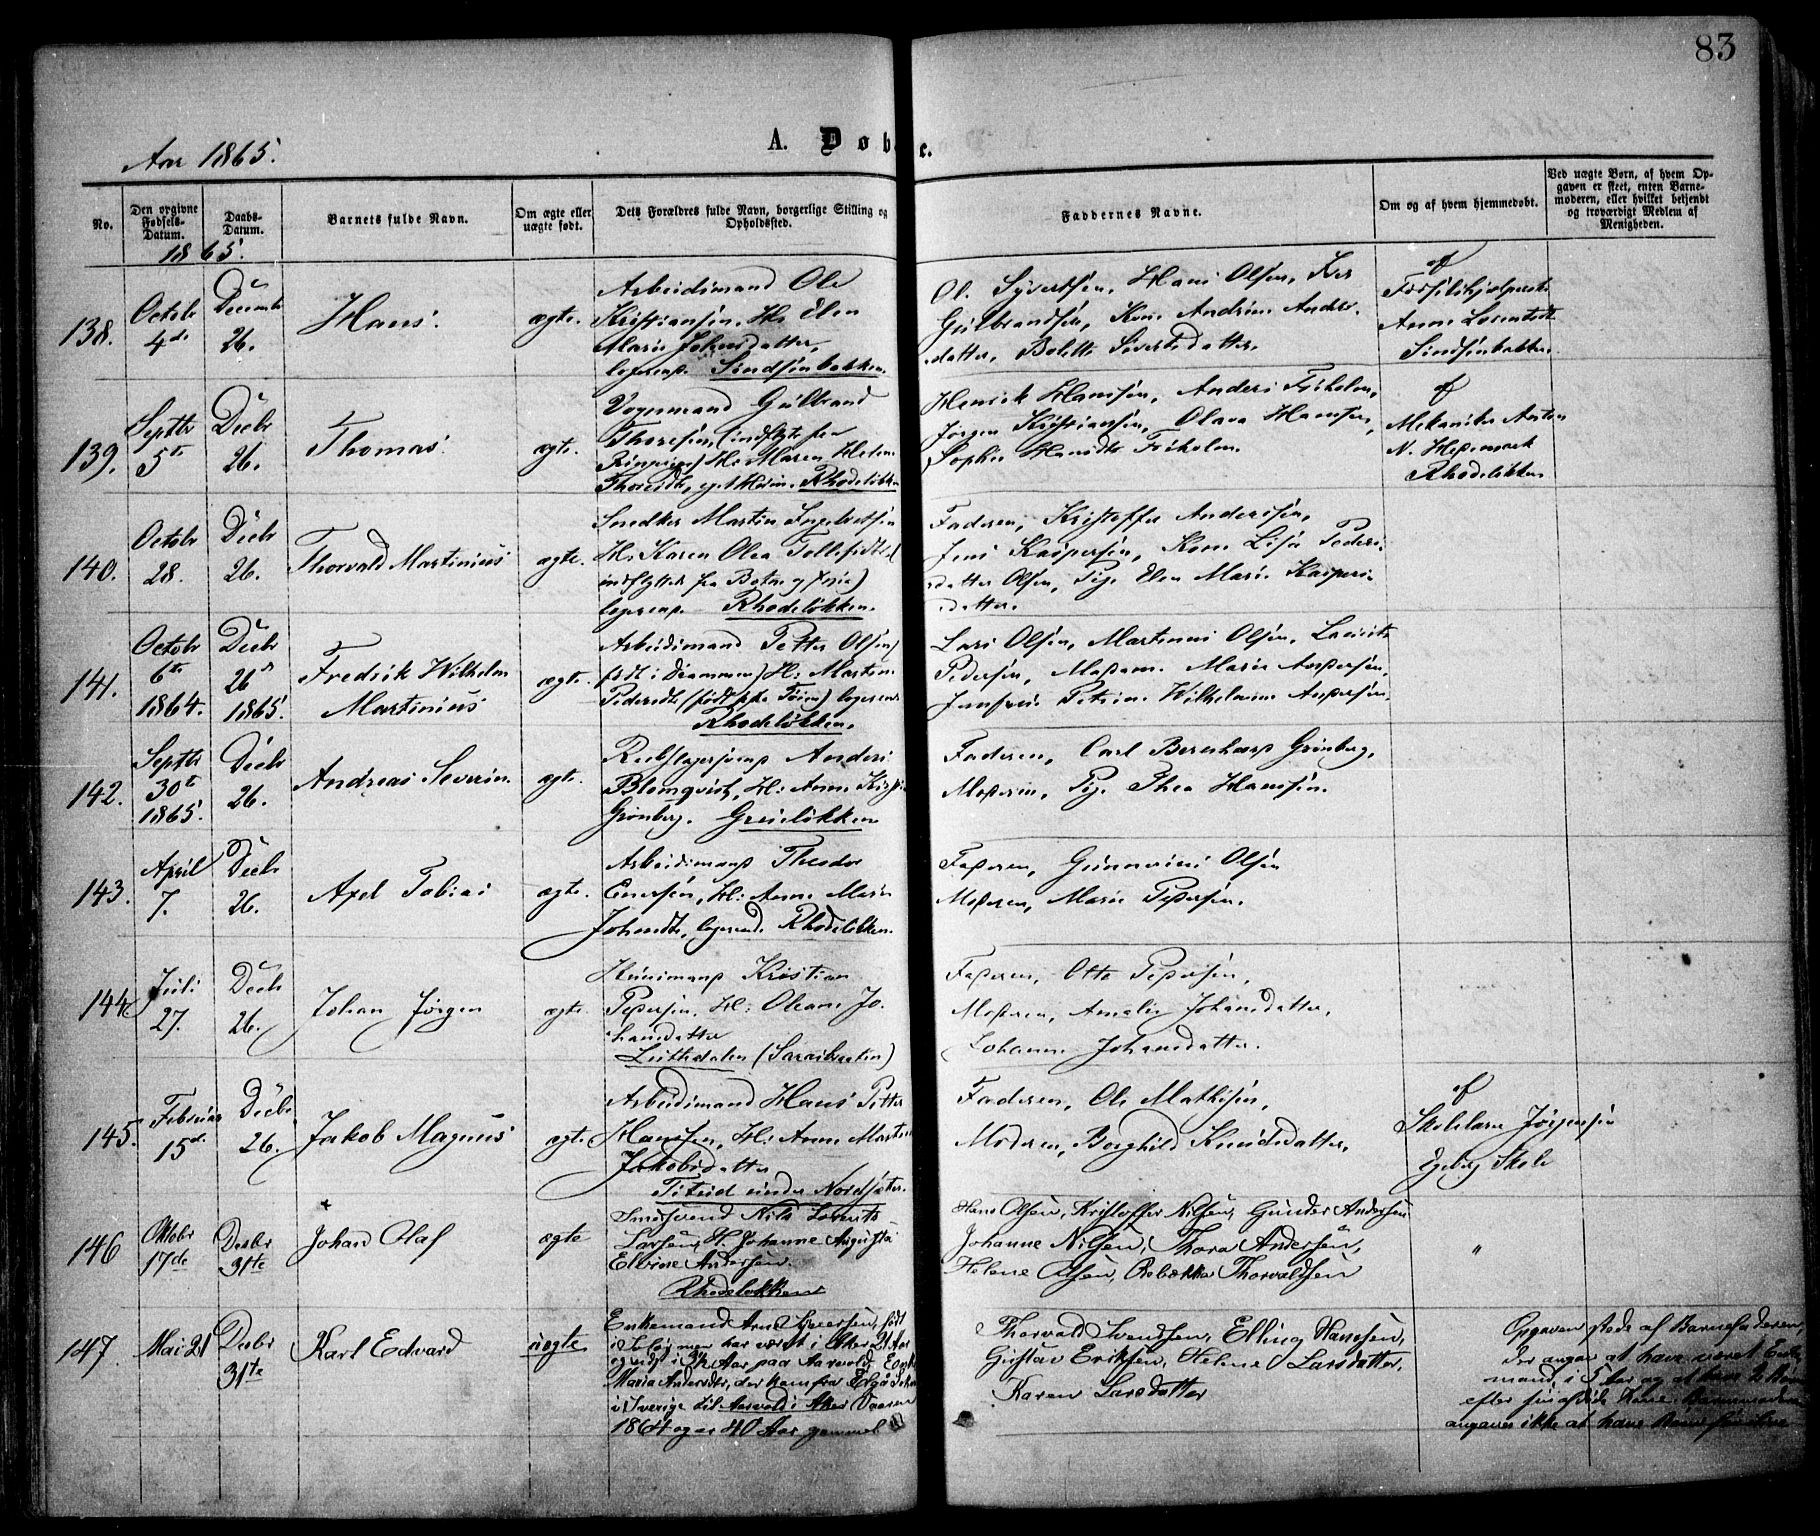 83
Aar 1865.
A. Døbte.
No.
Den opgivne Fødsels-Datum.
Daabs-Datum.
Barnets fulde Navn.
Om ægte eller uægte født.
Dets Forældres fulde Navn, borgerlige Stilling og Opholdssted.
Faddernes Navne.
Om og af hvem hjemmedøbt.
Ved uægte Børn, af hvem Opgaven er skeet, enten Barnemoderen, eller hvilket betjendt og troværdigt Medlem af Menigheden.
1865.
138.
Octobr 4de
Decembr 26.
Hans.
ægte.
Arbeidsmand Ole
Kristiansen, H: Elen
Marie Johnsdatter,
logerende Sindsenbakken.
Ol. Syvertsen, Hans Olsen, Iver
Gulbrandsen, Kone Andrine Anders-
datter, Bolette Sivertsdatter.
af
Anne Lorentsdt
Sindsenbakken.
139.
Septbr 5te
Decbr 26.
Thomas.
ægte.
Vognmand Gulbrand
Thoresen, (indflyttet fra
H: Maren Helene
Rhodeløkken
Henrik Hansen, Anders Friholm,
Jørgen Kristiansen, Olava Hansen,
Sophie Friholm.
af
Mekaniker Anton
N. Hedemark
Rhodeløkken
140.
Octobr 28.
Decbr 26.
Thorvald Martinius
ægte.
Snedker Martin Ingebretsen
H: Karen Olea Tollefsdtr (
indflyttet fra Botne
logerende Rhodeløkken.
Faderen, Kristoffer Andersen,
Jens Kaspersen, Kone Lise Peders-
datter Olsen, Pige Elen Marie Kaspers-
datter.
141.
Octobr 6te 1864.
Decbr 26de 1865.
Fredrik Wilhelm
Martinius
ægte.
Arbeidsmand Petter Olsen (
født i Drammen) H: Martine
Pedersdt (født paa Tøien) logerende
Rhodeløkken.
Lars Olsen, Martinus Olsen, Laurits
Pedersen, Madam Marie Andersen,
Jomfru Petrine Wilhelmine Andersen.
142.
Septbr 30te 1865.
Decbr 26.
Andreas Severin.
ægte.
Rebslagersvend Anders
Blomqvist, H: Anne
Grønberg. Grüneløkken
Faderen, Carl Bernhard Grønberg,
Moderen, Pige Thea Hansen.
143.
April 7.
Decbr 26.
Axel Tobias
ægte.
Arbeidsmand Theodor
Enersen, H: Anne Marie
Johnsdtr, logerende Rhodeløkken.
Faderen, Gunnerius Olsen
Moderen, Marie Pedersen.
144
Juli 27.
Decbr 26.
Johan Jørgen
ægte.
Huusmand Kristian
Pedersen, H: Oleane Jo-
hansdatter
(Saraibraaten)
Faderen, Otto Pedersen,
Moderen, Amalie Johansdatter,
Johanne Johansdatter.
145.
Februar 15de
Decbr 26.
Jakob Magnus
ægte.
Arbeidsmand Hans Petter
Hansen, H: Anne Martine
Jakobsdatter
under Nordsæter.
Faderen, Ole Mathisen,
Moderen, Borghild Knudsdatter,
af
Skolelærer Jørgensen
Egeberg Skole
146
Oktobr 17de
Decbr 31te
Johan Olaf
ægte
Smedsvend Nils Lorents
Larsen, H. Johanne Augusta
Elvine Andersen.
Rhodeløkken
Hans Olsen, Kristoffer Nilsen, Gunder Andersen
Johanne Nilsen, Thora Andersen,
Helene Olsen, Rebækka Thorvaldsen
"
147.
Mai 21
Decbr 31te
Karl Edvard
uægte
Enkemand Arne Iversen, født
i men har været i Aker 21 Aar
og sidst i 3½ Aar paa Aarvold, Enke
Maria Andersdtr, der kom fra
i Sverige til Aarvold i Aker Vaaren
1864 og er 40 Aar gammel
Thorvald Svendsen, Elling Hansen,
Gustav Eriksen, Helene Larsdatter,
Karen Larsdatter
Opgaven skede af Barnefaderen,
der angav at have været Enke-
mand i 5 Aar og at have 2 Børn
efter sin afdøde Kone. Barnemoderen
angaves ikke at have Børn